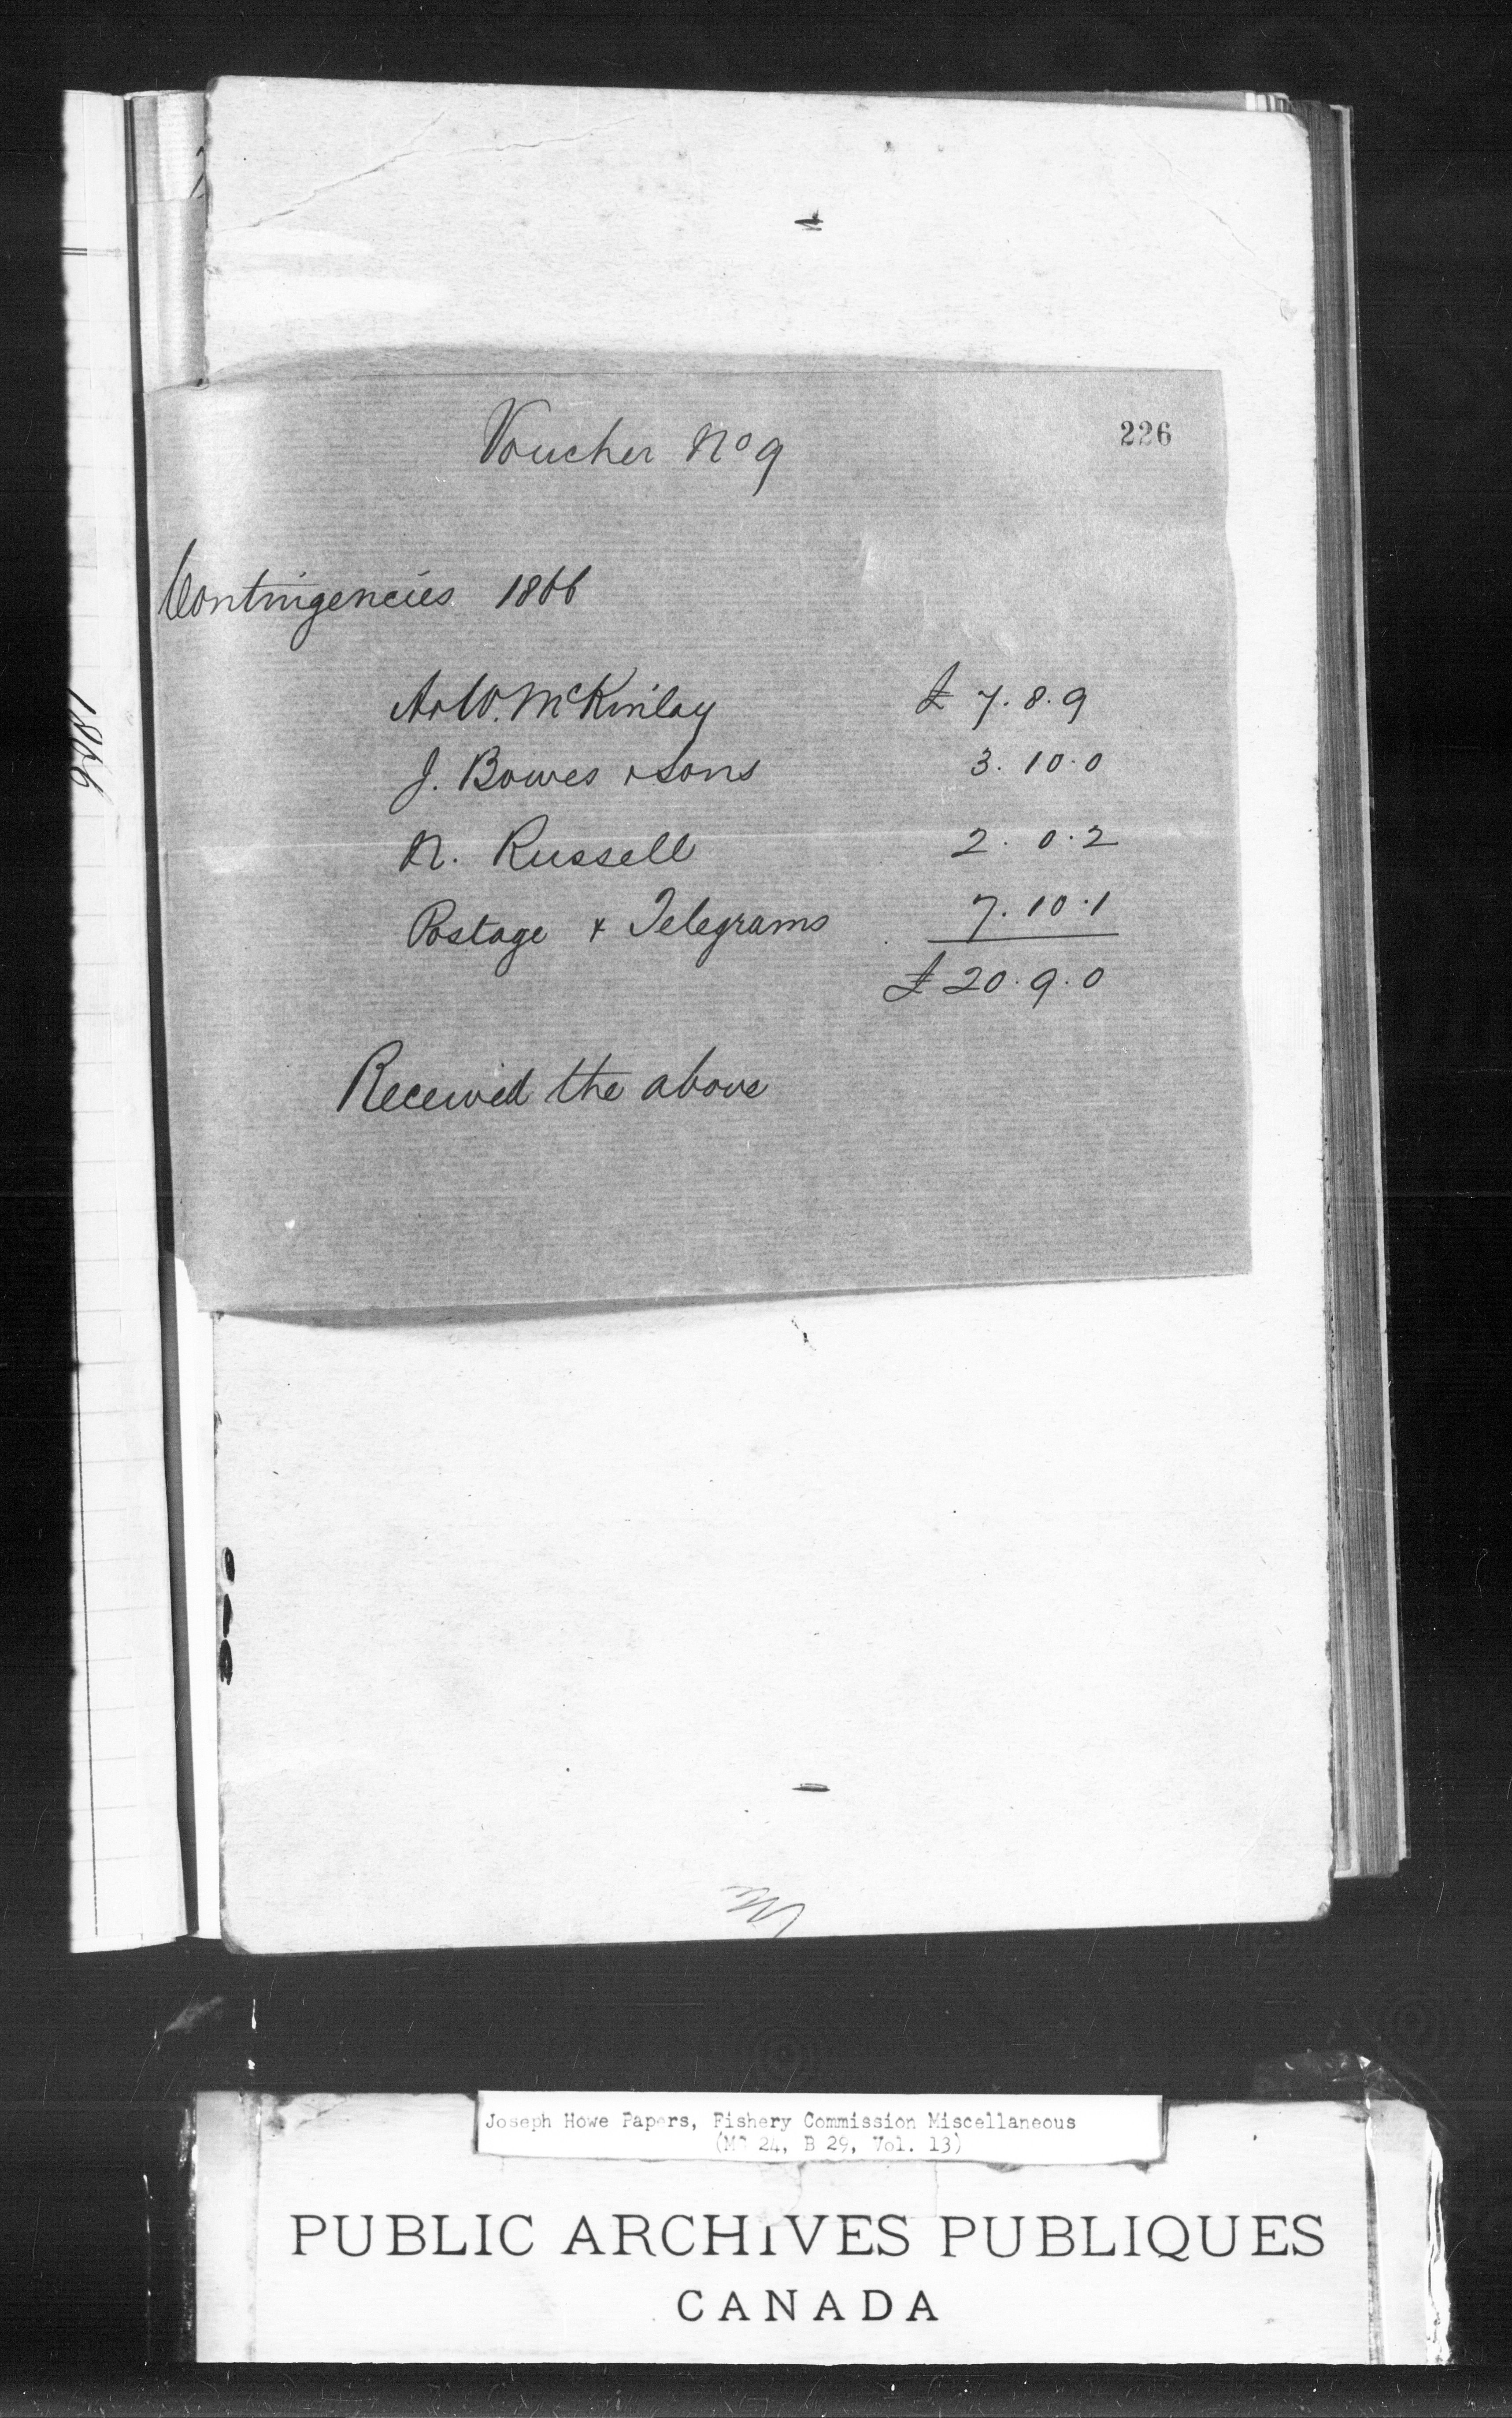 Voucher No 9
226
Contingencies 1866
A & W. McKinlay £ 7. 8. 9
J. Bowes & Sons 3. 10. 0
N. Russell 2. 0. 2
Postage & Telegrams 7. 10. 1
£ 20. 9. 0
Received the above
1866
Joseph Howe Papers, Fishery Commission Miscellaneous
(MG 24, B 29, Vol. 13)
PUBLIC ARCHIVES PUBLIQUES
CANADA